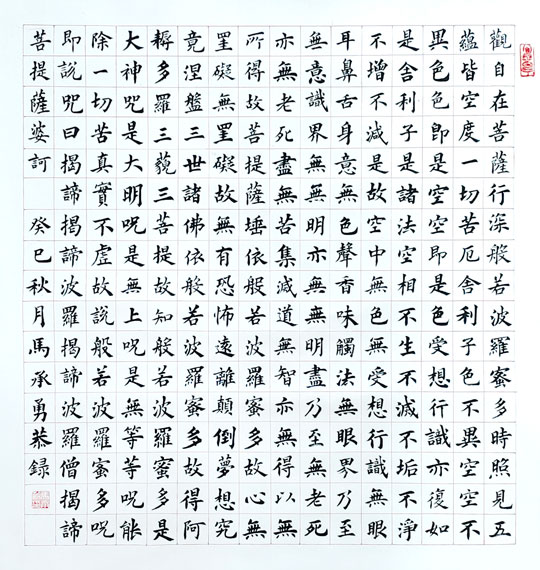 觀自在菩薩行深般若波羅蜜多時照見五
蘊皆空度一切苦厄舍利子色不異空空不
異色色即是空空即是色受想行識亦復如
是舍利子是諸法空相不生不滅不垢不淨
不增不減是故空中無色無受想行識無眼
耳鼻舌身意無色聲香味觸法無眼界乃至
無意識界無無明亦無無明盡乃至無老死
亦無老死盡無苦集滅道無智亦無得以無
所得故菩提薩埵依般若波羅蜜多故心無
罣礙無罣礙故無有恐怖遠離顛倒夢想究
竟涅盤三世諸佛依般若波羅蜜多故得阿
耨多羅三藐三菩提故知般若波羅蜜多是
大神咒是大明咒是無上咒是無等等咒能
除一切苦真實不虛故說般若波羅蜜多咒
即說咒曰揭諦揭諦波羅揭諦波羅僧揭諦
菩提薩婆訶 癸巳秋月馬承勇恭錄